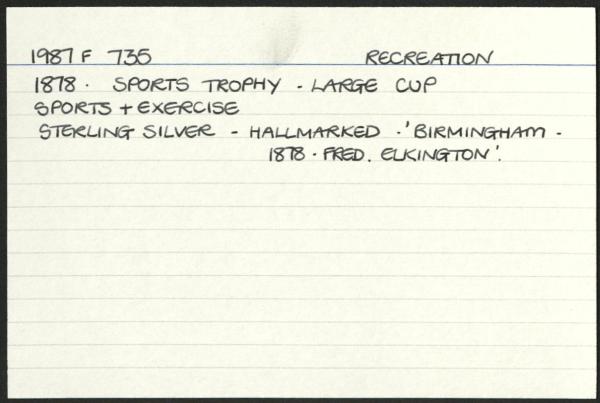 1987 F 735 RECREATION
1878. SPORTS TROPHY - LARGE CUP
SPORTS + EXERCISE
STERLING SILVER - HALLMARKED .'BIRMINGHAM -
1878. FRED. ELKINGTON'.